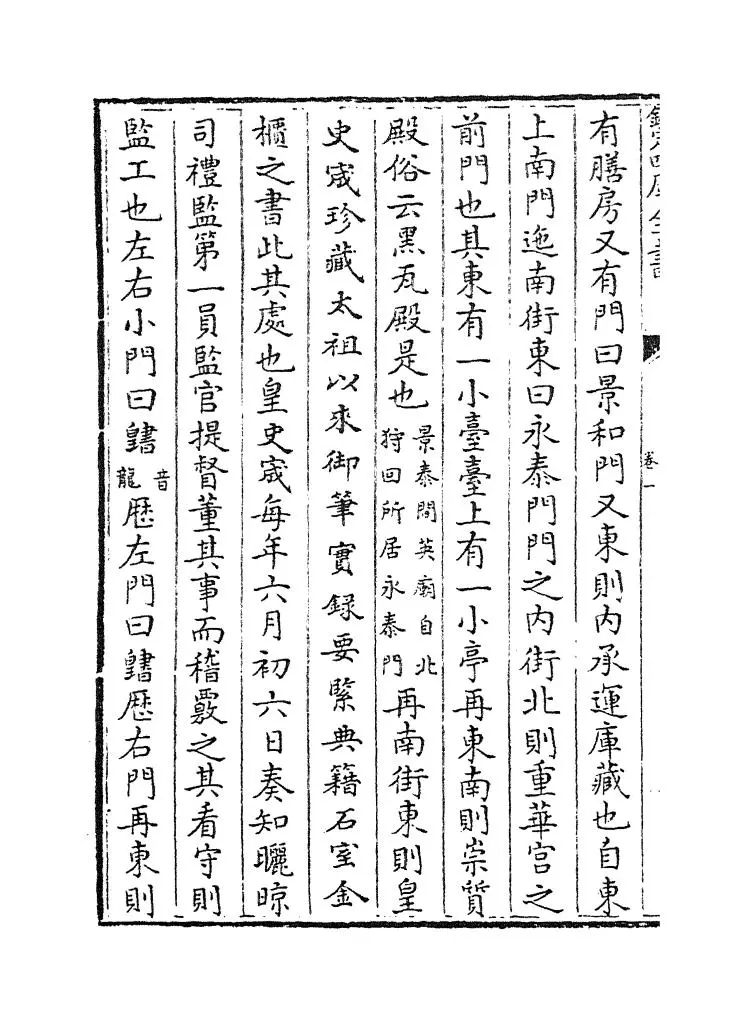 欽定四庫全書
卷一
有膳房又有門曰景和門又東則内承運庫藏也自東
上南門迤南街東曰永泰門門之内街北則重華宫之
前門也其東有一小臺臺上有一小亭再東南則崇質
殿俗云黑瓦殿是也景泰間英廟自北狩回所居永泰門再南街東則皇
史宬珍藏太祖以來御筆實録要緊典籍石室金
櫃之書此其處也皇史宬每年六月初六日奏知曬晾
司禮監第一員監官提督董其事而稽覈之其看守則
監工也左右小門曰𨯳音龍歴左門曰𨯳歴右門再東則